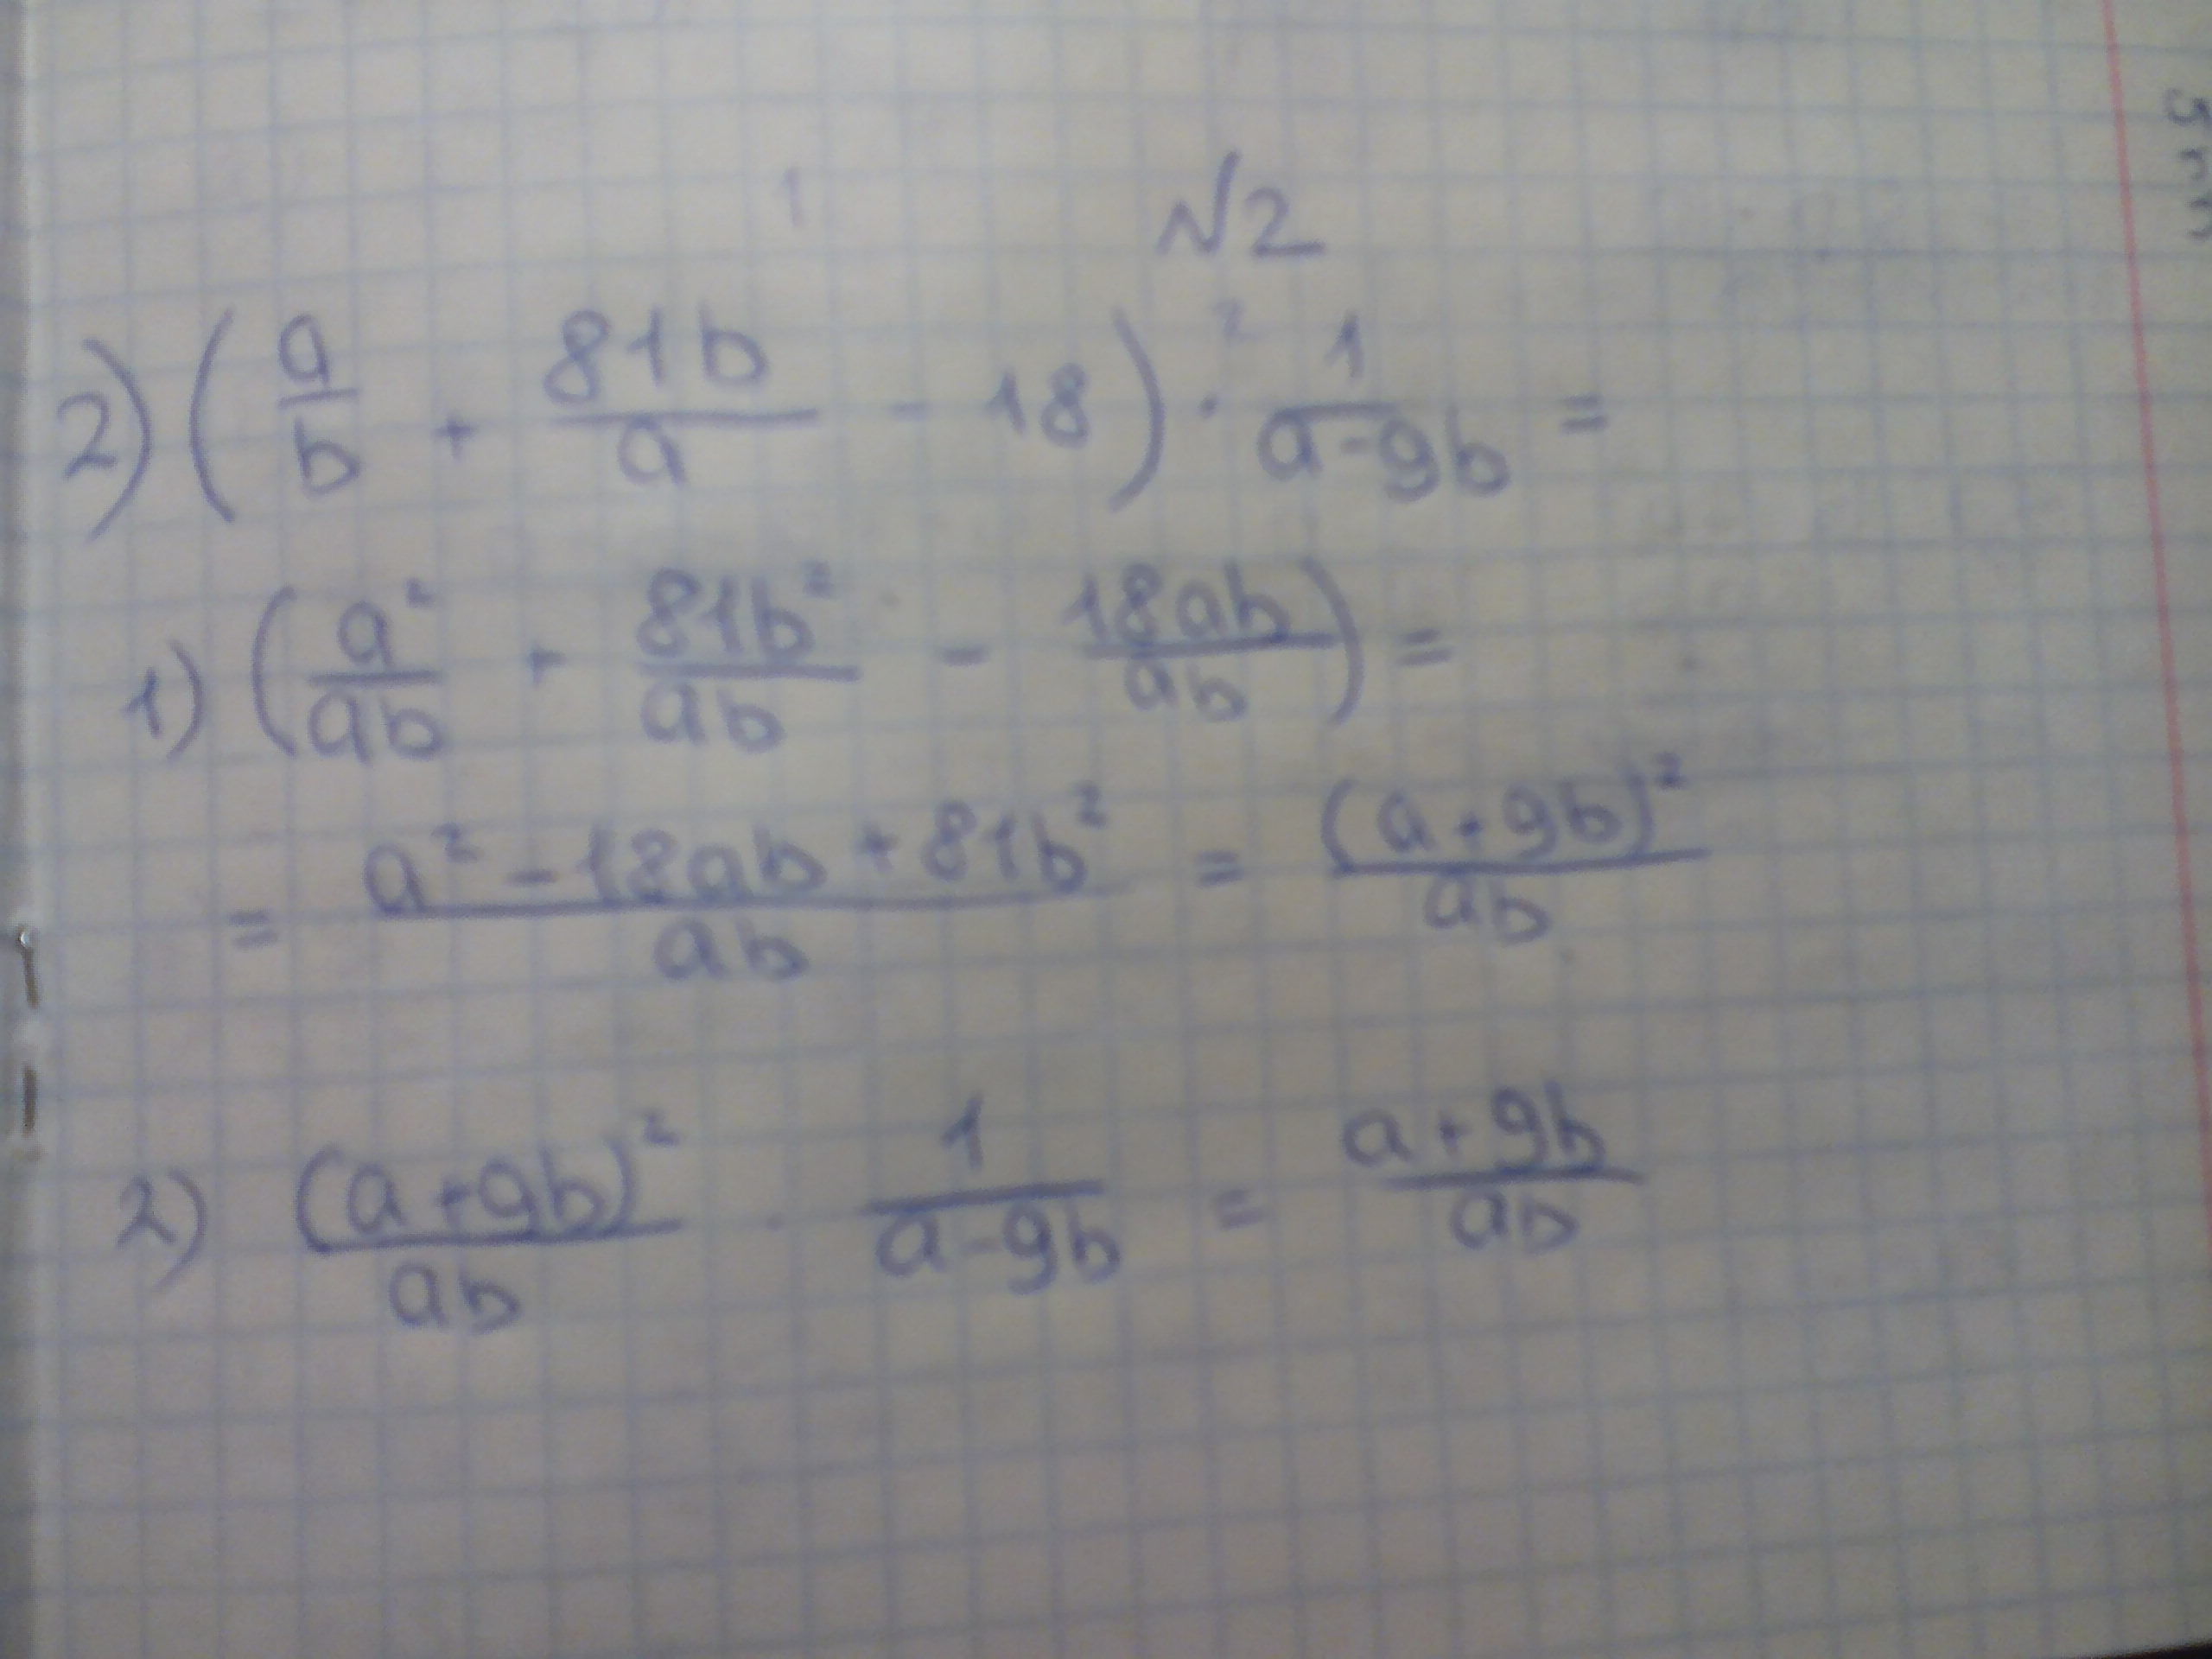 1 2
№2
2) (a/b + 81b/a - 18) · 1/(a-9b) =
1) (a²/ab + 81b²/ab - 18ab/ab) =
= (a² - 18ab + 81b²)/ab = (a+9b)²/ab
2) (a+9b)²/ab · 1/(a-9b) = (a+9b)/ab